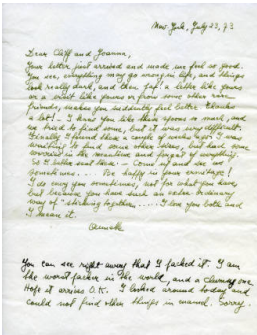 New York, July 23, 73
Dear Cliff and Joanna,
Your letter just arrived and made me feel so good.
You see, everything may go wrong in life, and things
look really dark, and then zap! a letter like yours
or a visit like yours or from some other rare
friends, makes you suddenly feel better. Thanks
a lot! - I knew you like them spoons so much, and
we tried to find some, but it was very difficult.
Finally I found them a couple of weeks ago. I was
waiting to find some other ideas, but had some
worries in the meantime and forgot of everything.
So I better send them. - Come out and see us
sometimes.... Be happy in your
I do envy you sometimes, not for what you have
but because you have such an extra ordinary
way of "sticking together..... I love you both and
I mean it.
You can see right away that I packed it. I am
the worst packer in the world, and a clumsy one.
Hope it arrives O.K. I looked around today and
could not find other things in enamel. Sorry.